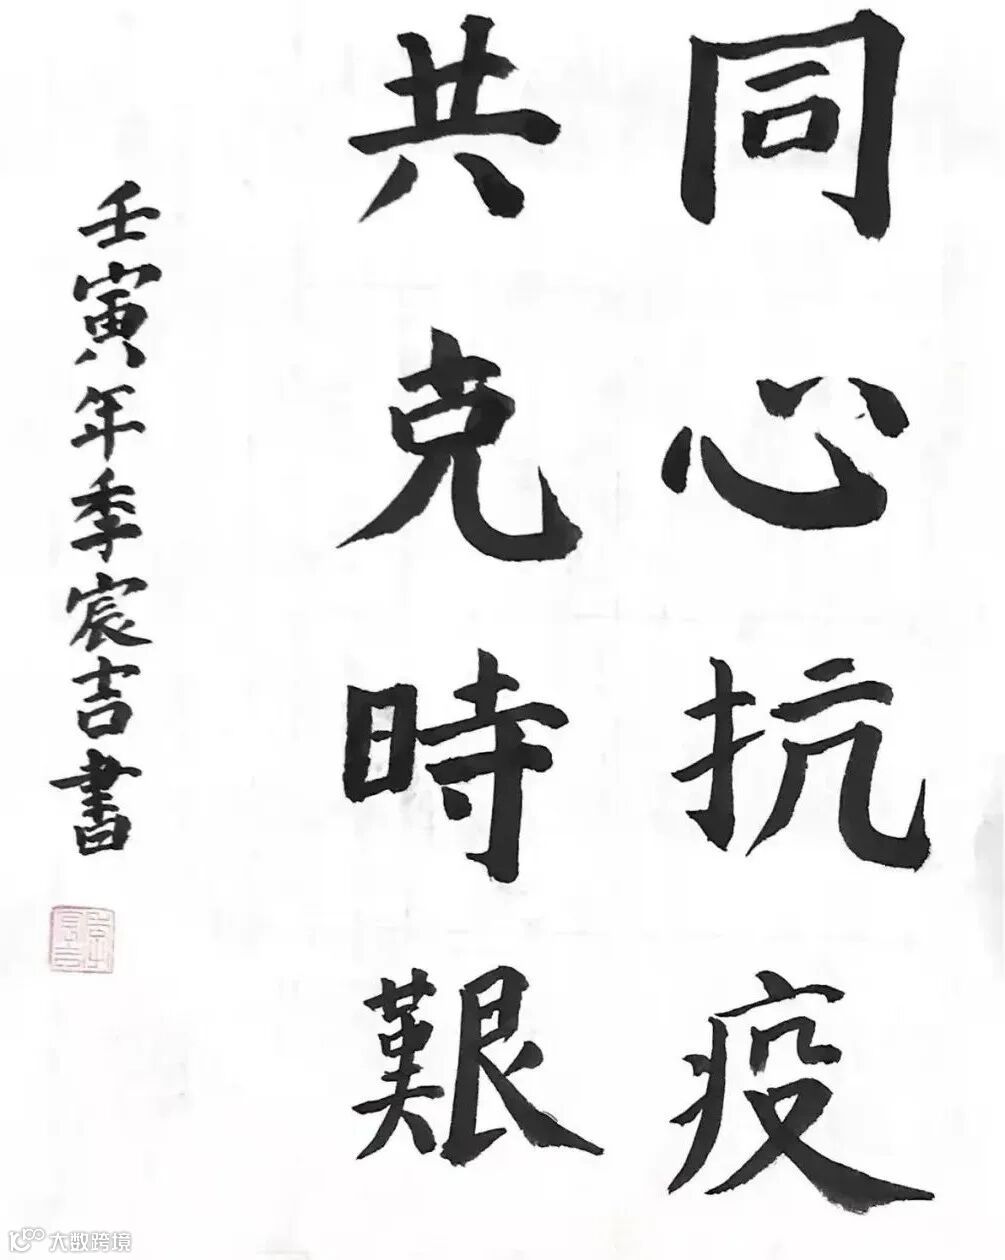 同心抗疫
共克時艱
壬寅年季宸吉書
大数跨境